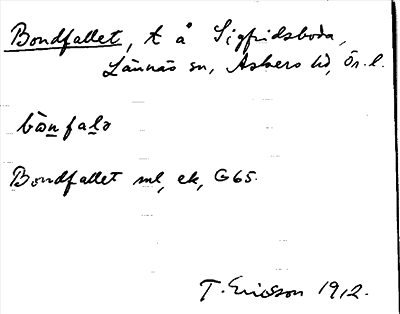 Bondfallet, t å Sigfridsboda,
Lännäs sn, Askers hd, Ör. l.
bòn falə
Bondfallet ml, ek, G65.
T. Ericson 1912.